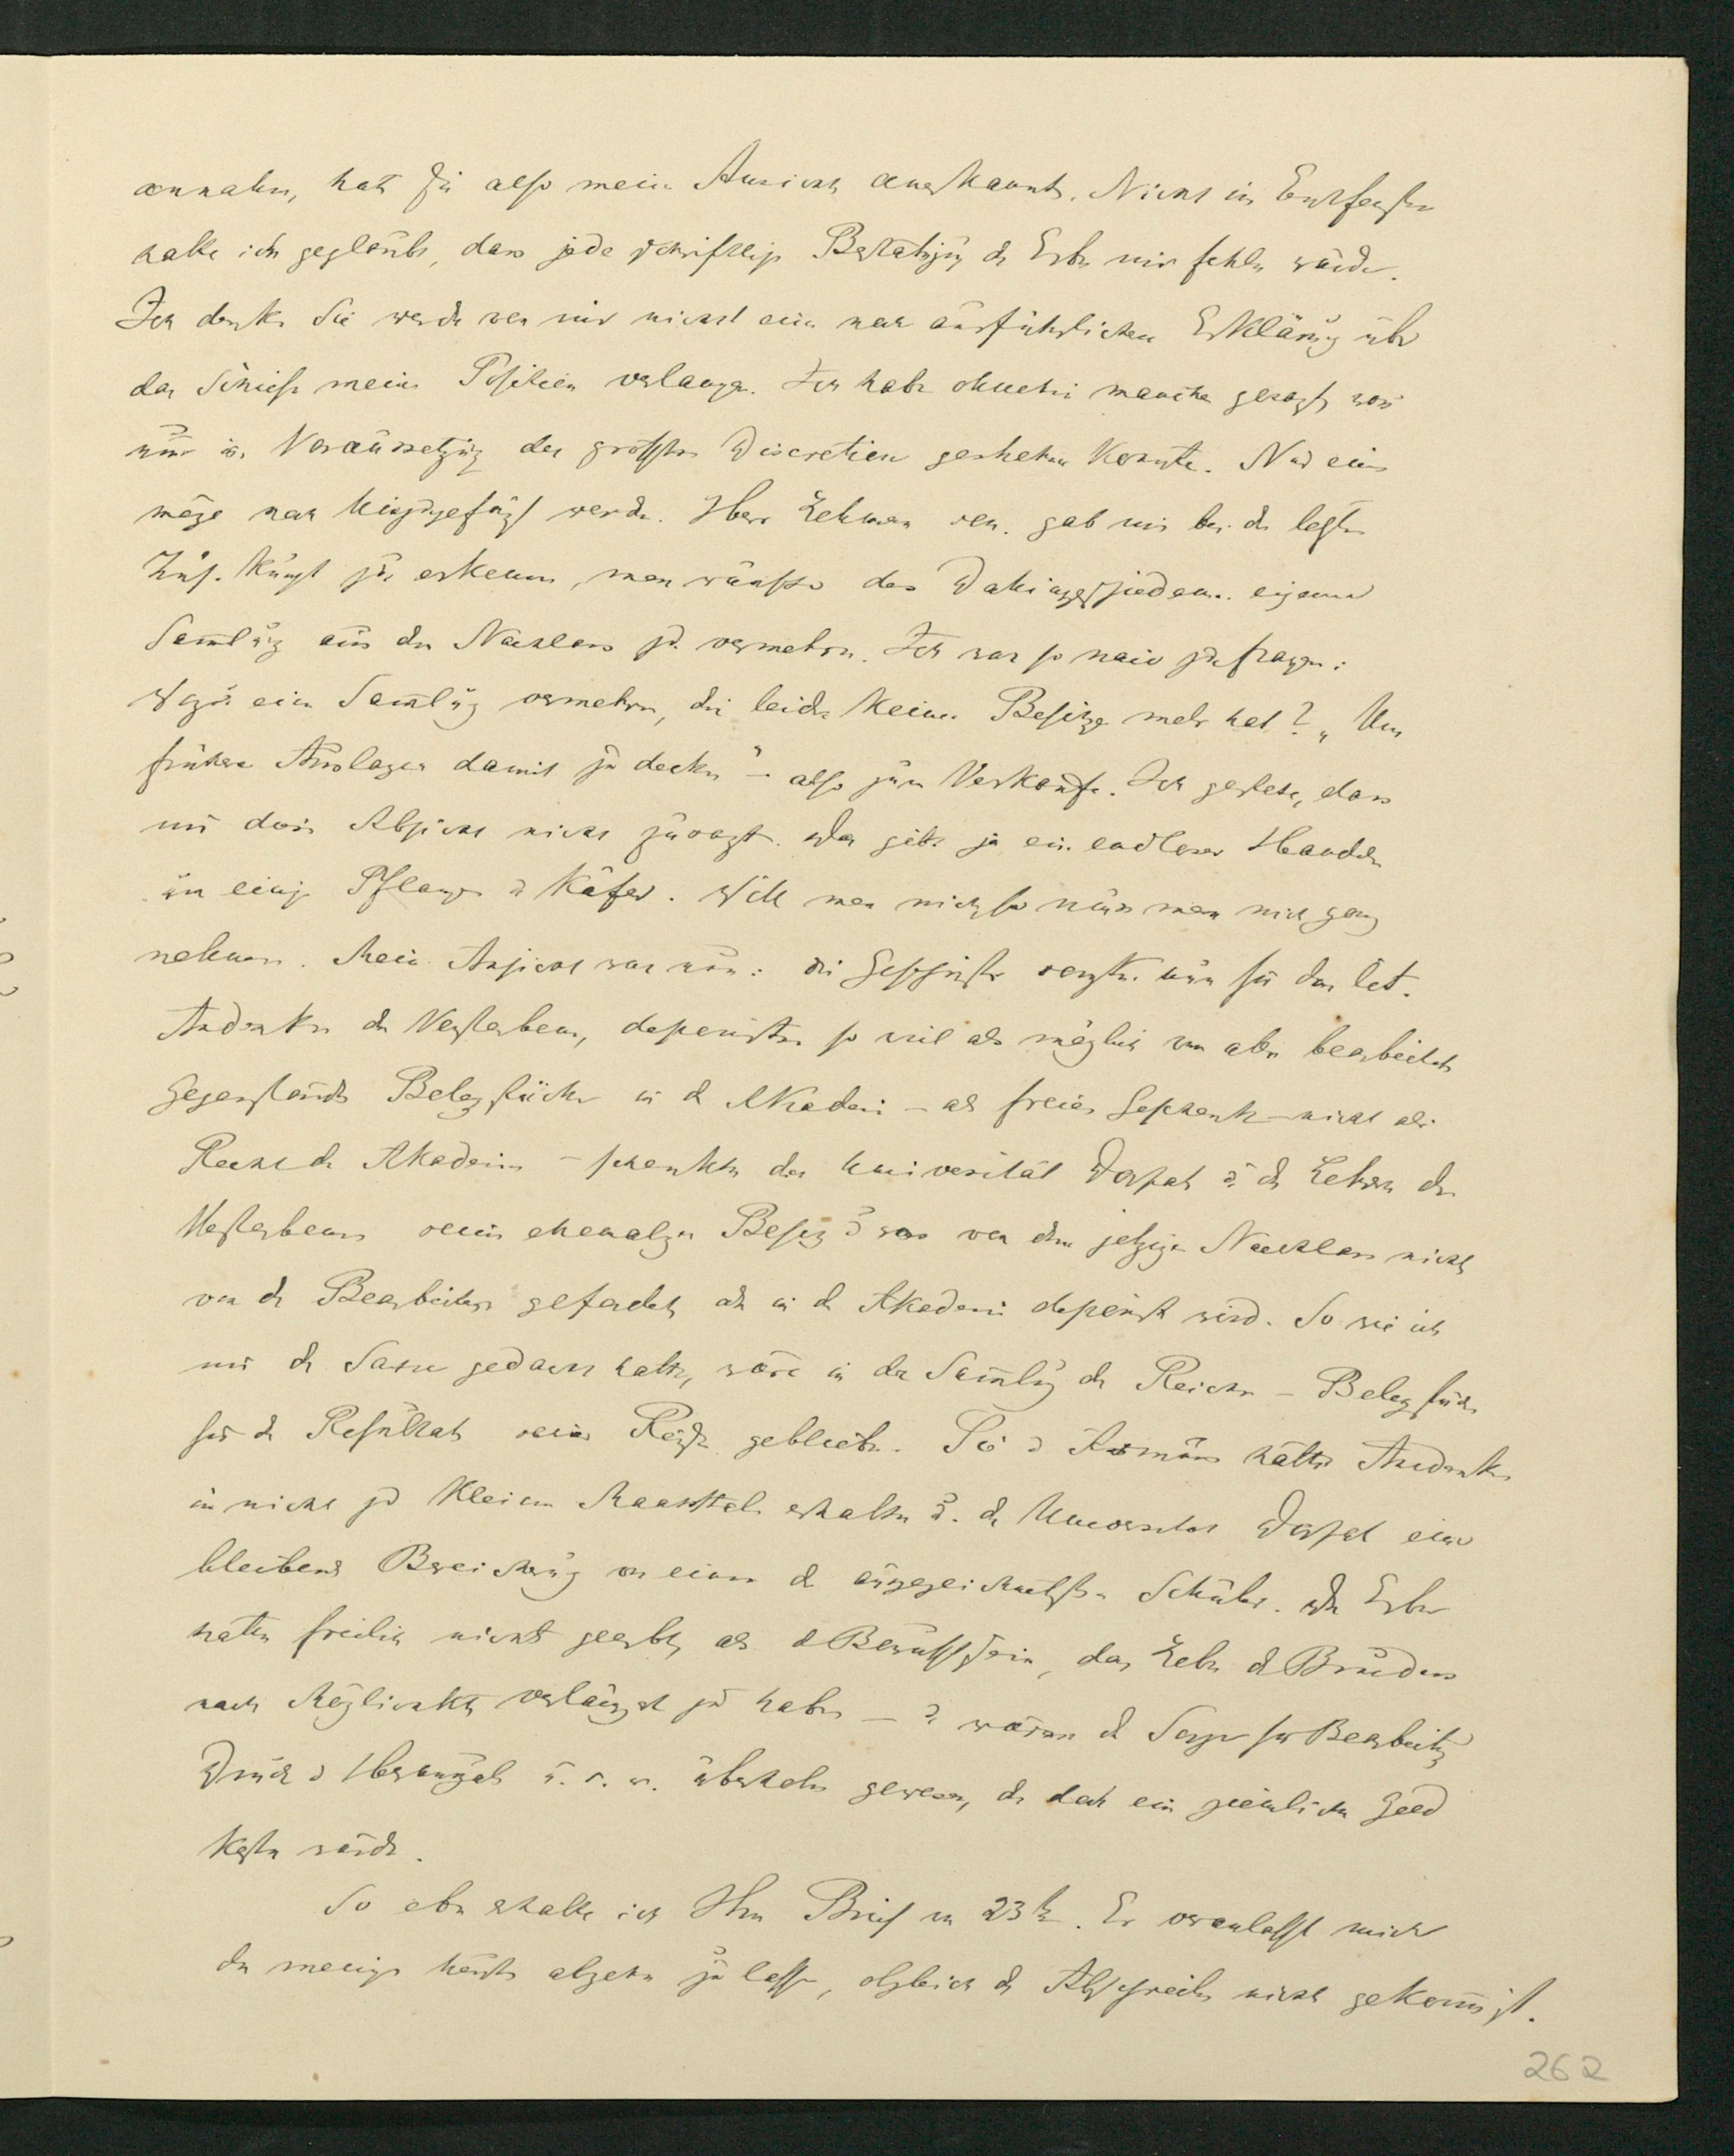 annahm, hat Sie also meine Ansicht anerkannt. Nicht im Entfernsten
hatte ich geglaubt, dass jede schriftliche Bestätigung der Erben mir fehlen würde.
Ich denke Sie werden von mir nicht eine noch ausführlichere Erklärung über
das Schiefe meiner Position verlangen. Ich habe ohnehin manches gesagt was
nur in Voraussetzung der grössten Discretion geschehen konnte. Nur eins
möge noch hinzugefügt werden. Herr Lehman sen. gab mir bei der letzten
Zus.kunft zu erkennen, man wünsche des Dahingeschiedenen eigene
Sammlung aus dem Nachlass zu vermehren. Ich war so naiv zu fragen:
Wozu eine Sammlung vermehren, die leider keinen Besitzer mehr hat? „Um
frühere Auslagen damit zu decken" – also zum Verkaufe. Ich gestehe, dass
mir diese Absicht nicht zusagt. Das gibt ja ein endloses Handeln
um einige Pflanzen u Käfer. Will man nicht so muss man mich ganz
nehmen. Meine Ansicht war nun: die Geschwister sorgten nun für das
Andenken des Verstorbenen, deponirten so viel als möglich von allen bearbeiteten
Gegenständen Belegstücke in der Akademie – als freies Geschenk – nicht als
Recht der Akademie – schenkten der Universität Dorpat u. den Lehrern des
Verstorbenen seinen ehemaligen Besitz u was von dem jetzigen Nachlass nicht
von den Bearbeitern gefordert oder in der Akademie deponirt wird. So wie ich
mir die Sache gedacht hatte, wäre in der Sammlung des Reiches – Belegstücke
für die Resultate seiner Reise geblieben. Sie u hätten Andenken
in nicht zu kleinem Maasstabe erhalten u. die Universität Dorpat eine
bleibende Bereicherung von einem der ausgezeichnetsten Schüler. Die Erben
hätten freilich nichts geerbt, als das Bewusstsein, das Leben des Bruders
nach Möglichkeit verlängert zu haben – u wären der Sorge für Bearbeitung
Druck u Herausgabe u. s. w. überhoben gewesen, die doch ein ziemliches Geld
kosten würde.
So eben erhalte ich Ihren Brief vom 23ten. Er veranlasst mich
den meinigen heute abgehen zu lassen, obgleich der Abschreiber nicht gekommen ist.
262